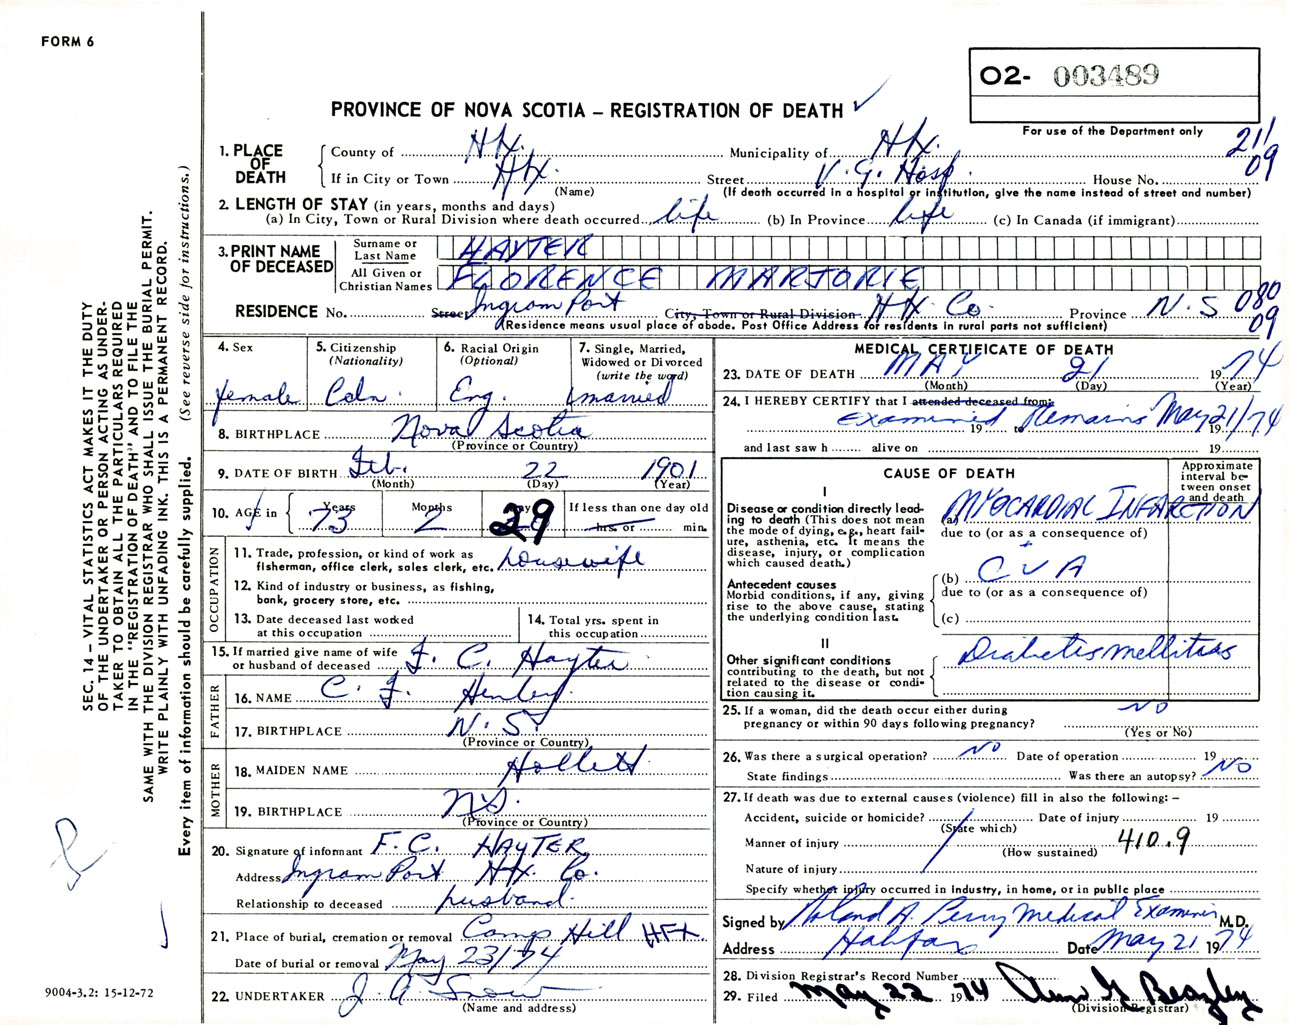 FORM 6
O2- 003489
PROVINCE OF NOVA SCOTIA – REGISTRATION OF DEATH ✓
For use of the Department only
211
09
1. PLACE OF DEATH
County of Hx. Municipality of Hx.
If in City or Town Hx. Street V. G. Hosp. House No.
(Name) (If death occurred in a hospital or institution, give the name instead of street and number)
2. LENGTH OF STAY (in years, months and days)
(a) In City, Town or Rural Division where death occurred life (b) In Province life (c) In Canada (if immigrant)
3. PRINT NAME OF DECEASED
Surname or Last Name HAYTER
All Given or Christian Names FLORENCE MARJORIE
RESIDENCE No. Street Ingram Port City, Town or Rural Division Hx. Co. Province N.S 080
09
(Residence means usual place of abode. Post Office Address for residents in rural parts not sufficient)
4. Sex female
5. Citizenship (Nationality) Cdn.
6. Racial Origin (Optional) Eng.
7. Single, Married, Widowed or Divorced (write the word) married
8. BIRTHPLACE Nova Scotia
(Province or Country)
9. DATE OF BIRTH Feb. 22 1901
(Month) (Day) (Year)
10. AGE in Years 73 Months 2 29 If less than one day old hrs. or min.
OCCUPATION
11. Trade, profession, or kind of work as fisherman, office clerk, sales clerk, etc. housewife
12. Kind of industry or business, as fishing, bank, grocery store, etc.
13. Date deceased last worked at this occupation
14. Total yrs. spent in this occupation
15. If married give name of wife or husband of deceased F. C. Hayter
FATHER
16. NAME C. F. Henley
17. BIRTHPLACE N. S.
(Province or Country)
MOTHER
18. MAIDEN NAME Hollett
19. BIRTHPLACE N.S.
(Province or Country)
20. Signature of informant F. C. HAYTER
Address Ingram Port Hx. Co.
Relationship to deceased husband
21. Place of burial, cremation or removal Camp Hill HFX.
Date of burial or removal May 23/74
22. UNDERTAKER J. A. Snow
(Name and address)
MEDICAL CERTIFICATE OF DEATH
23. DATE OF DEATH MAY 21 1974
(Month) (Day) (Year)
24. I HEREBY CERTIFY that I attended deceased from:
Examined 19 to Remains May 21/74 19
and last saw h alive on 19
CAUSE OF DEATH
Approximate interval between onset and death
I
Disease or condition directly leading to death (This does not mean the mode of dying, e.g., heart failure, asthenia, etc. It means the disease, injury, or complication which caused death.)
(a) MYOCARDIAL INFARCTION
due to (or as a consequence of)
+
Antecedent causes
Morbid conditions, if any, giving rise to the above cause, stating the underlying condition last.
(b) CVA
due to (or as a consequence of)
(c)
II
Other significant conditions contributing to the death, but not related to the disease or condition causing it.
Diabetes mellitus
25. If a woman, did the death occur either during pregnancy or within 90 days following pregnancy? NO
(Yes or No)
26. Was there a surgical operation? NO Date of operation 19
State findings Was there an autopsy? NO
27. If death was due to external causes (violence) fill in also the following: –
Accident, suicide or homicide? Date of injury 19
(State which)
Manner of injury 410.9
(How sustained)
Nature of injury
Specify whether injury occurred in Industry, in home, or in public place
Signed by Roland A. Perry Medical Examiner M.D.
Address Halifax Date May 21 1974
28. Division Registrar's Record Number
29. Filed May 22 1974 Ann G Beazley
(Division Registrar)
SEC. 14 – VITAL STATISTICS ACT MAKES IT THE DUTY
OF THE UNDERTAKER OR PERSON ACTING AS UNDER-
TAKER TO OBTAIN ALL THE PARTICULARS REQUIRED
IN THE "REGISTRATION OF DEATH" AND TO FILE THE
SAME WITH THE DIVISION REGISTRAR WHO SHALL ISSUE THE BURIAL PERMIT.
WRITE PLAINLY WITH UNFADING INK. THIS IS A PERMANENT RECORD.
Every item of information should be carefully supplied. (See reverse side for instructions.)
9004-3.2: 15-12-72